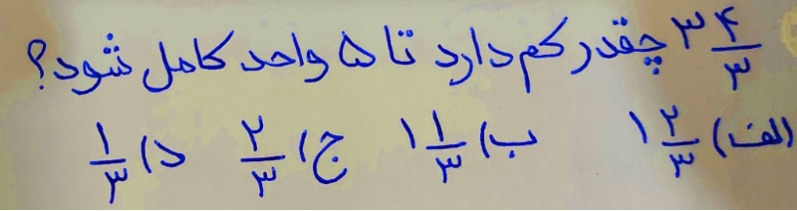 ۳ ۴/۳ چقدر کم دارد تا ۵ واحد کامل شود؟
الف) ۱ ۲/۳ ب) ۱ ۱/۳ ج) ۲/۳ د) ۱/۳